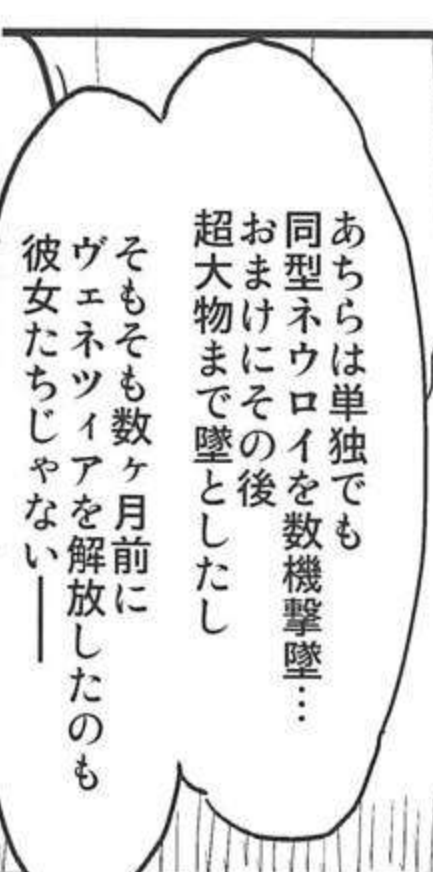 あちらは単独でも
同型ネウロイを数機撃墜…
おまけにその後
超大物まで墜としたし
そもそも数ヶ月前に
ヴェネツィアを解放したのも
彼女たちじゃない――